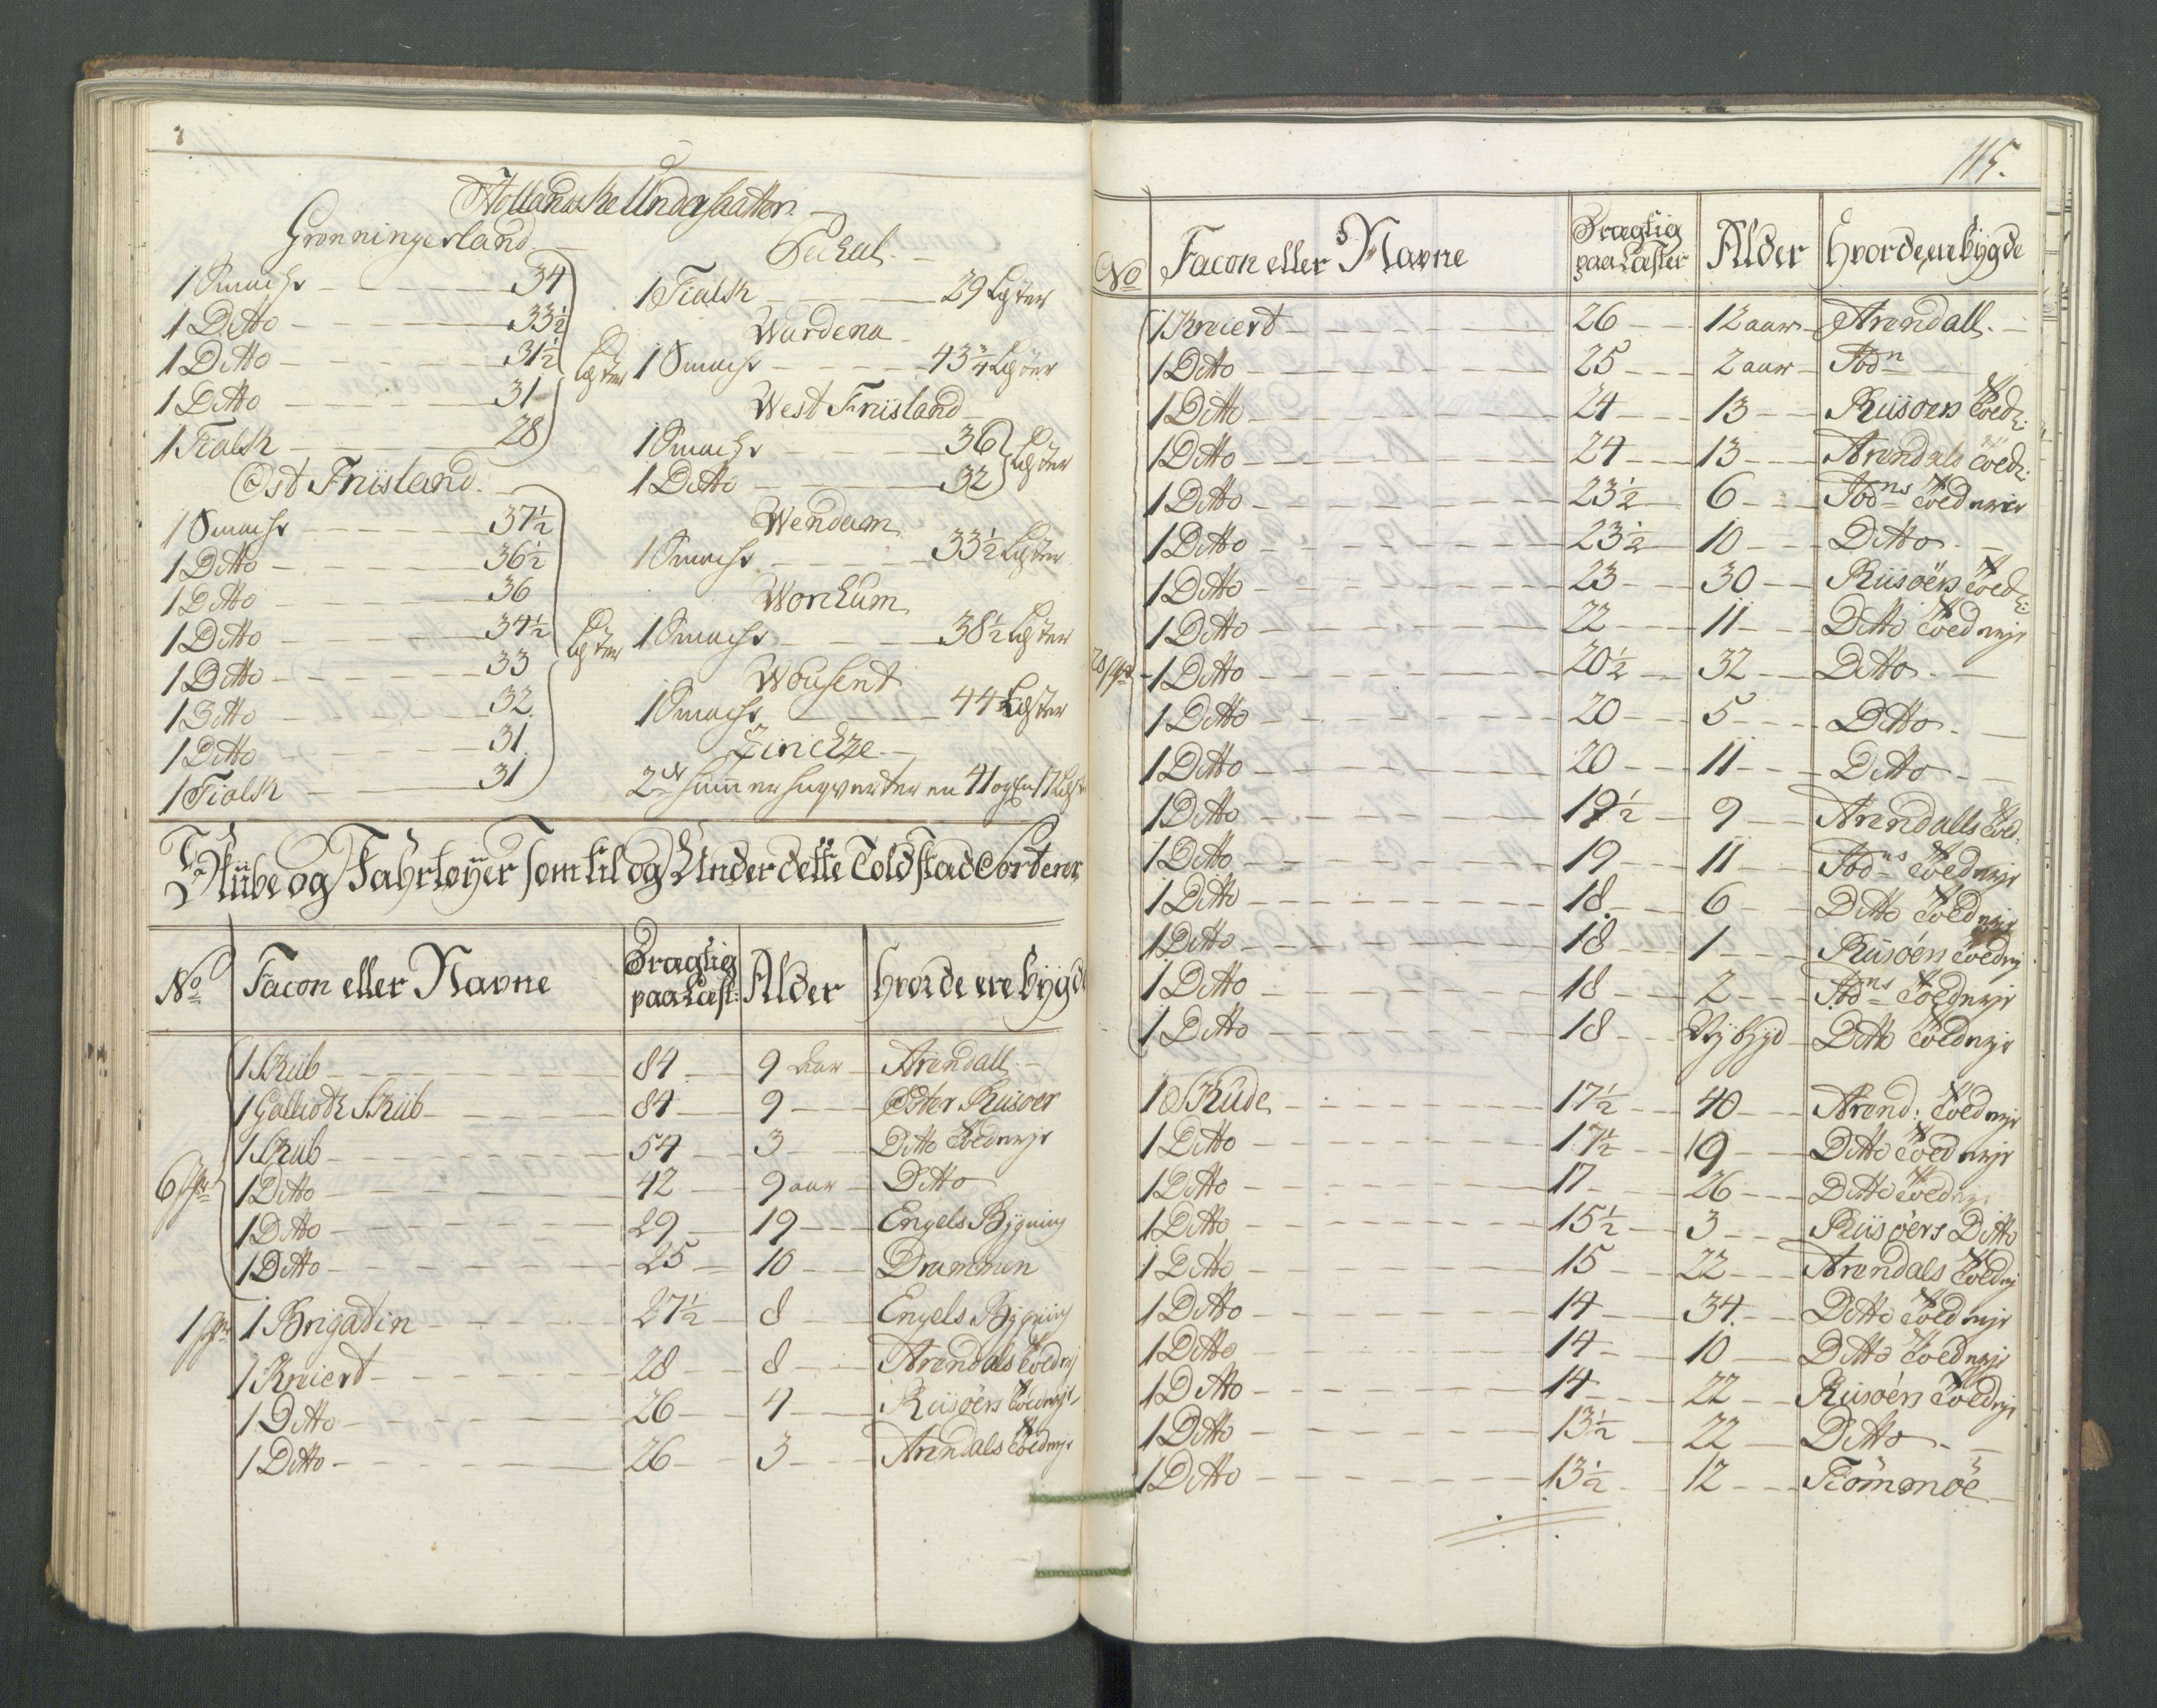 Hollandske Undersaatter
Grønningerland
1 Smach 34
1 Ditto 33½
1 Ditto 31½
1 Ditto 31
1 Tialk 28
Læster
Ost Friisland
1 Smach 37½
1 Ditto 36½
1 Ditto 36
1 Ditto 34½
1 Ditto 33
1 Ditto 32
1 Ditto 31
1 Tialk 31
Læster
Peckel
1 Tialk 29 Læster
Wardena
1 Smach 43¾ Læster
West Friisland
1 Smach 36
1 Ditto 32
Læster
Wendam
1 Smach 33½ Læster
Workum
1 Smach 38½ Læster
Wousent
1 Smach 44 Læster
Zirickze
2de 41 og 17 Læst
Skiibe og Fahrtøyer som til og Under dette Toldstad Sorterer
No Facon eller Navne Dragtig paa Læst: Alder hvor de ere bygde
1 Skib 84 9 Aar Arendall
1 Gallioth Skib 84 9 Øster Riisøer
1 Skib 54 3 Ditto Toldnejr
6 1 Ditto 42 9 aar Ditto
1 Ditto 29 19 Engels Bygning
1 Ditto 25 10 Drammen
1 1 Brigatin 27½ 8 Engels Bygning
1 Kreiert 28 8 Arendals Toldnej
1 Ditto 26 4 Riisøers Toldnejr
1 Ditto 26 3 Arendals Toldnejr
115.
No Facon eller Navne Dragtig paa Læster Alder hvor de ere bygde
1 Kreiert 26 12 aar Arendall
1 Ditto 25 2 aar Ibdn
1 Ditto 24 13 Riisøers Toldn:
1 Ditto 24 13 Arendals Toldn:
1 Ditto 23½ 6 Ibdns Toldnejr
1 Ditto 23½ 10 Ditto
1 Ditto 23 30 Riisøers Toldn:
1 Ditto 22 11 Ditto Toldnejr
1 Ditto 20½ 32 Ditto
1 Ditto 20 5 Ditto
1 Ditto 20 11 Ditto
1 Ditto 19½ 9 Arendalls Told:
1 Ditto 19 11 Ibdns Toldnejr
1 Ditto 18 6 Ditto Toldnejr
1 Ditto 18 1 Riisøers Toldnej
1 Ditto 18 2 Ibdns Toldnejr
1 Ditto 18 Nybygd Ditto Toldnejr
1 Skude 17½ 40 Arend: Toldnejr
1 Ditto 17½ 19 Ditto Toldnejr
1 Ditto 17 26 Ditto Toldnej
1 Ditto 15½ 3 Riisøers Ditto
1 Ditto 15 22 Arendals Toldnej
1 Ditto 14 34 Ditto Toldnejr
1 Ditto 14 10 Ditto Toldnejr
1 Ditto 14 22 Riisøers Toldnejr
1 Ditto 13½ 22 Ditto
1 Ditto 13½ 12 Trömmöe